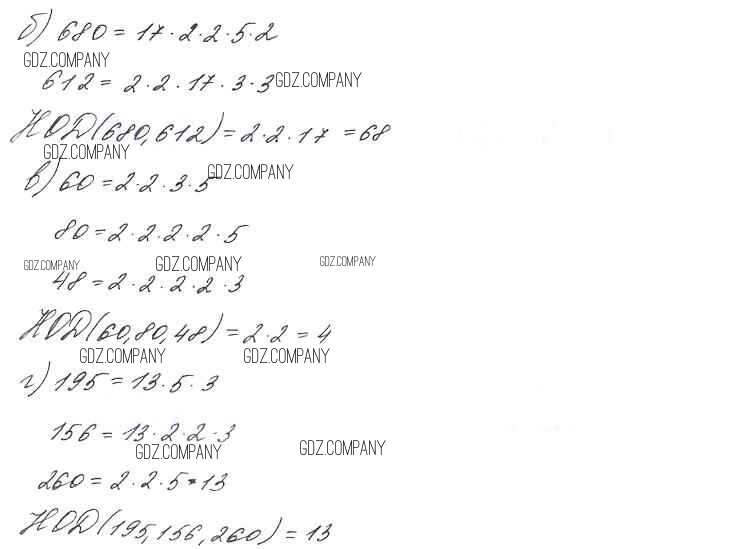 б) 680 = 17 · 2 · 2 · 5 · 2
GDZ.COMPANY
612 = 2 · 2 · 17 · 3 · 3 GDZ.COMPANY
НОД(680,612) = 2 · 2 · 17 = 68
GDZ.COMPANY
в) 60 = 2 · 2 · 3 · 5 GDZ.COMPANY
80 = 2 · 2 · 2 · 2 · 5
GDZ.COMPANY GDZ.COMPANY GDZ.COMPANY
48 = 2 · 2 · 2 · 2 · 3
НОД(60,80,48) = 2 · 2 = 4
GDZ.COMPANY GDZ.COMPANY
г) 195 = 13 · 5 · 3
156 = 13 · 2 · 2 · 3
GDZ.COMPANY GDZ.COMPANY
260 = 2 · 2 · 5 · 13
НОД(195,156,260) = 13